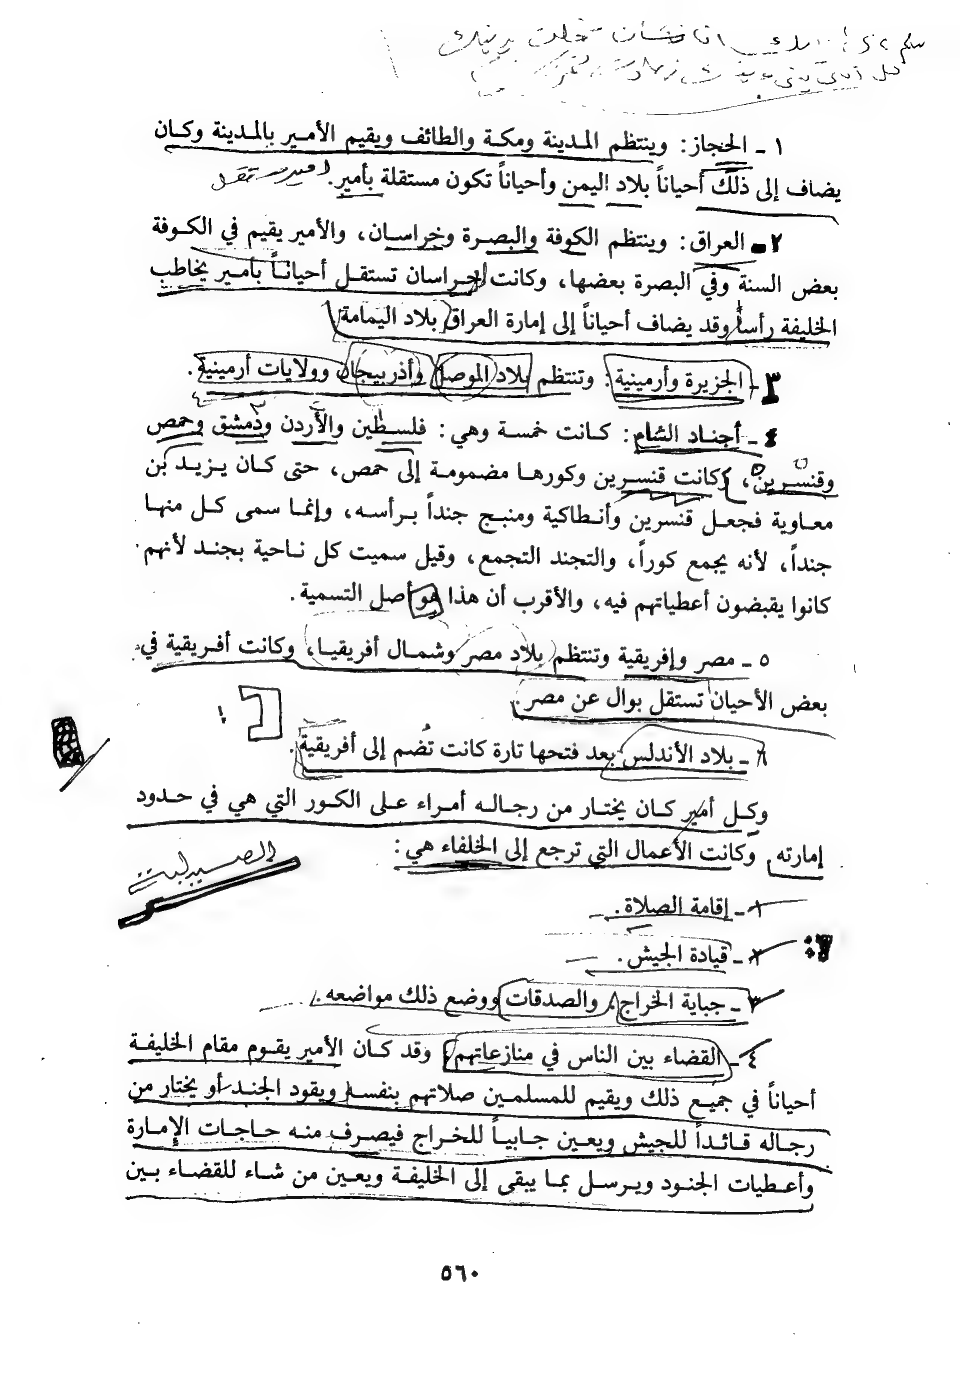 ١ - الحجاز: وينتظم المدينة ومكة والطائف ويقيم الأمير بالمدينة وكان
يضاف إلى ذلك أحياناً بلاد اليمن وأحياناً تكون مستقلة بأمير.
٢ - العراق: وينتظم الكوفة والبصرة وخراسان، والأمير يقيم في الكوفة
بعض السنة وفي البصرة بعضها، وكانت خراسان تستقل أحياناً بأمير يخاطب
الخليفة رأساً وقد يضاف أحياناً إلى إمارة العراق بلاد اليمامة
٣ - الجزيرة وأرمينية: وتنتظم بلاد الموصل وأذربيجان وولايات أرمينية.
٤ - أجناد الشام: كانت خمسة وهي: فلسطين والأردن ودمشق وحمص
وقنسرين، وكانت قنسرين وكورها مضمومة إلى حمص، حتى كان يزيد بن
معاوية فجعل قنسرين وأنطاكية ومنبج جنداً برأسه، وإنما سمى كل منها
جنداً، لأنه يجمع كوراً، والتجند التجمع، وقيل سميت كل ناحية بجند لأنهم
كانوا يقبضون أعطياتهم فيه، والأقرب أن هذا هو أصل التسمية.
٥ - مصر وإفريقية وتنتظم بلاد مصر وشمال أفريقيا، وكانت أفريقية في
بعض الأحيان تستقل بوال عن مصر.
٦ - بلاد الأندلس بعد فتحها تارة كانت تُضم إلى أفريقية.
وكل أمير كان يختار من رجاله أمراء على الكور التي هي في حدود
إمارته وكانت الأعمال التي ترجع إلى الخلفاء هي:
١ - إقامة الصلاة.
٢ - قيادة الجيش.
٣ - جباية الخراج والصدقات ووضع ذلك مواضعه.
٤ - القضاء بين الناس في منازعاتهم، وقد كان الأمير يقوم مقام الخليفة
أحياناً في جميع ذلك ويقيم للمسلمين صلاتهم بنفسه ويقود الجند أو يختار من
رجاله قائداً للجيش ويعين جابياً للخراج فيصرف منه حاجات الإمارة
وأعطيات الجنود ويرسل بما يبقى إلى الخليفة ويعين من شاء للقضاء بين
٥٦٠